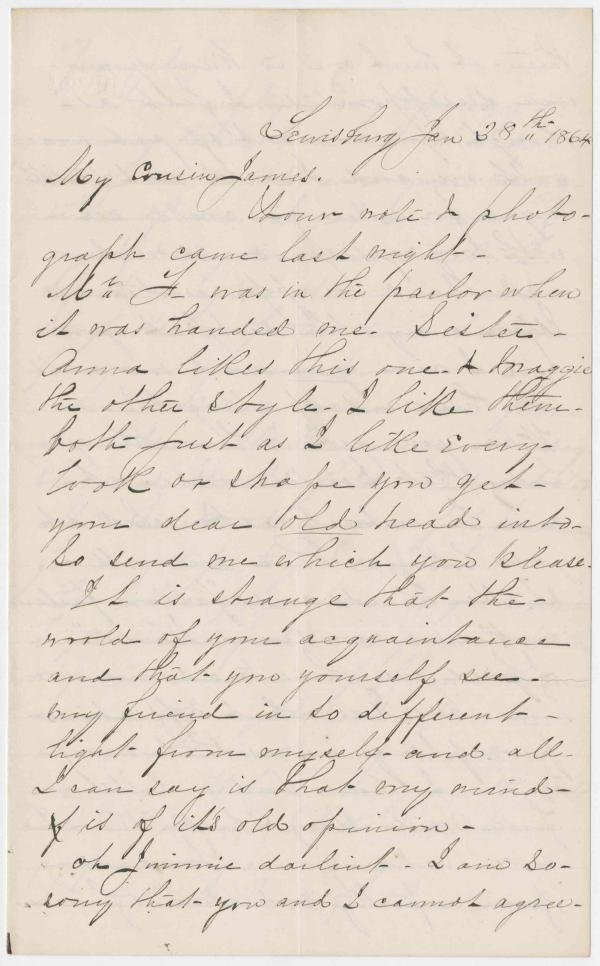 Lewisburg Jan 28th 1864
My Cousin James.
Your note & photo-
graph came last night-
Mr H was in the parlor when
it was handed me. Sister-
Anna likes this one- & Maggie
the other style- I like them-
both just as I like every-
look or shape you get-
your dear old head into-
So send me which you please.
It is strange that the-
world of your acquaintance
and that you yourself see-
my friend in so different-
light from myself- and all-
I can say is that my mind-
is of it's old opinion-
oh Jimmie darlint- I am so-
sorry that you and I cannot agree-